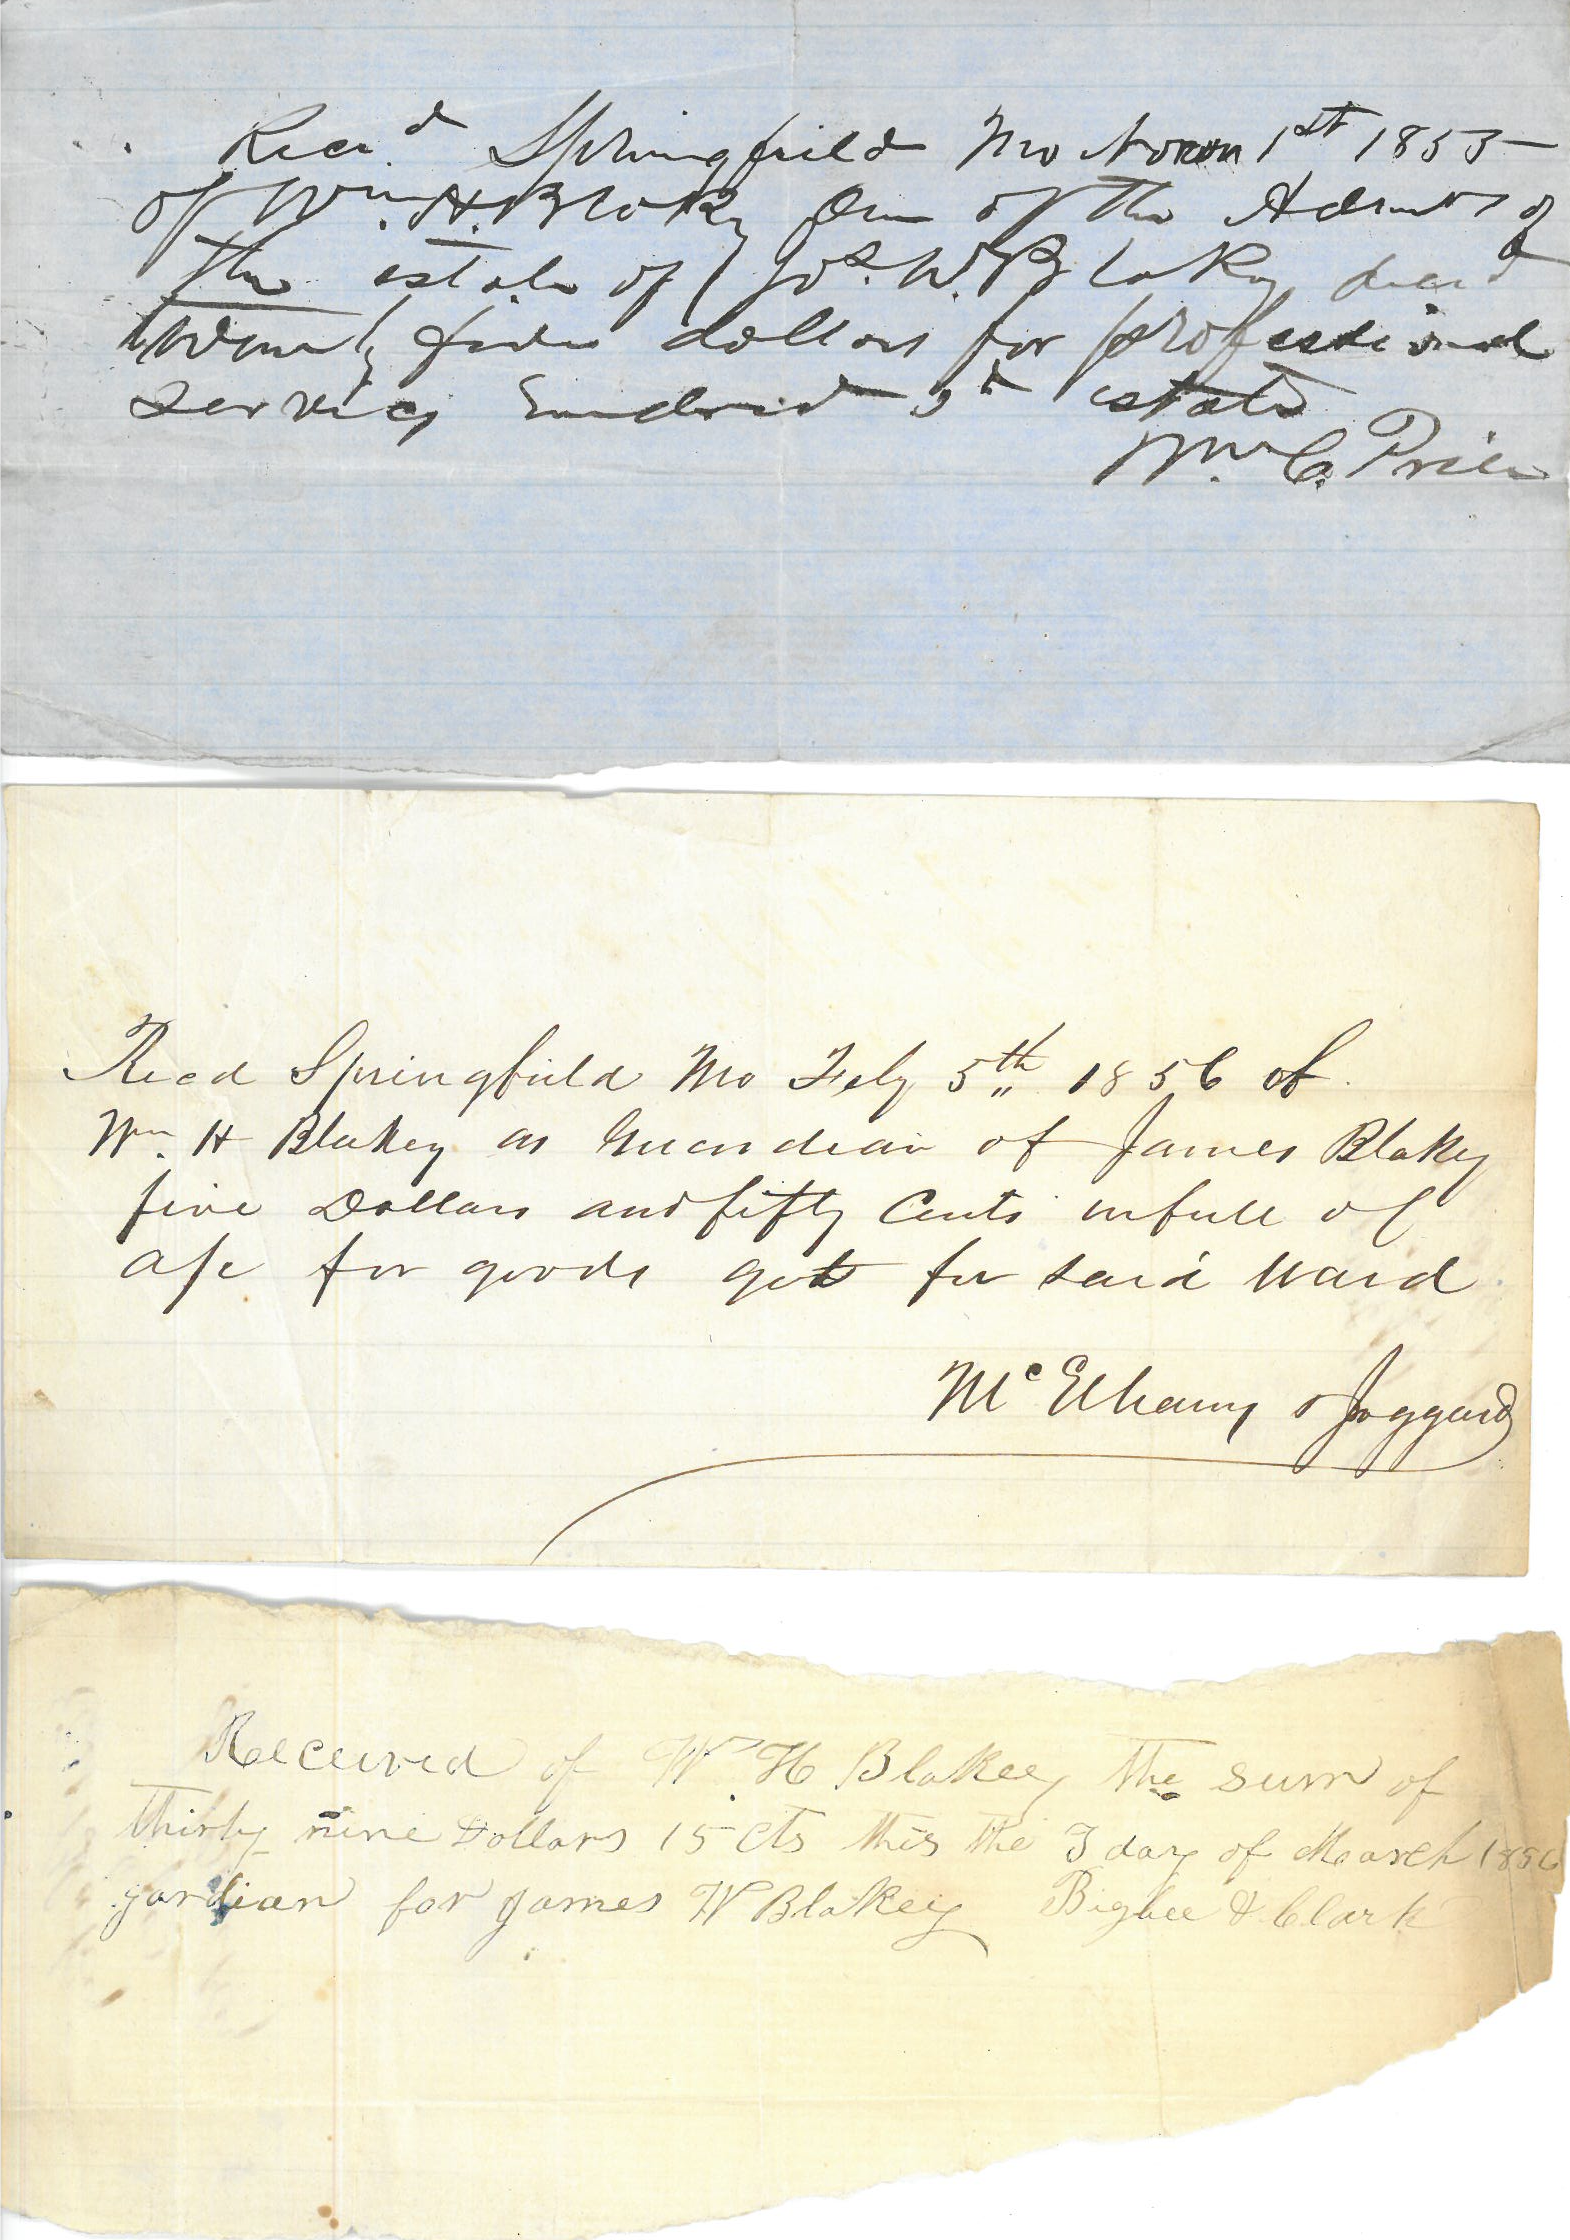 Recd. Springfield Mo Novem 1st 1855
of Wm. H. Blakey One of the Admrs of
the estate of Jas. W. Blakey decd
twenty five dollars for professional
services rendered sd estate
Wm. C. Price
Recd Springfield Mo Feby 5th 1856 of
Wm. H Blakey as Guardian of James Blakey
five Dollars and fifty Cents in full of
a/c for goods got for said Ward
McElhany & Jaggard
Received of Wm H Blakey the sum of
thirty nine Dollars 15 cts this the 3 day of March 1856
gardian for James W Blakey Bigbee & Clark